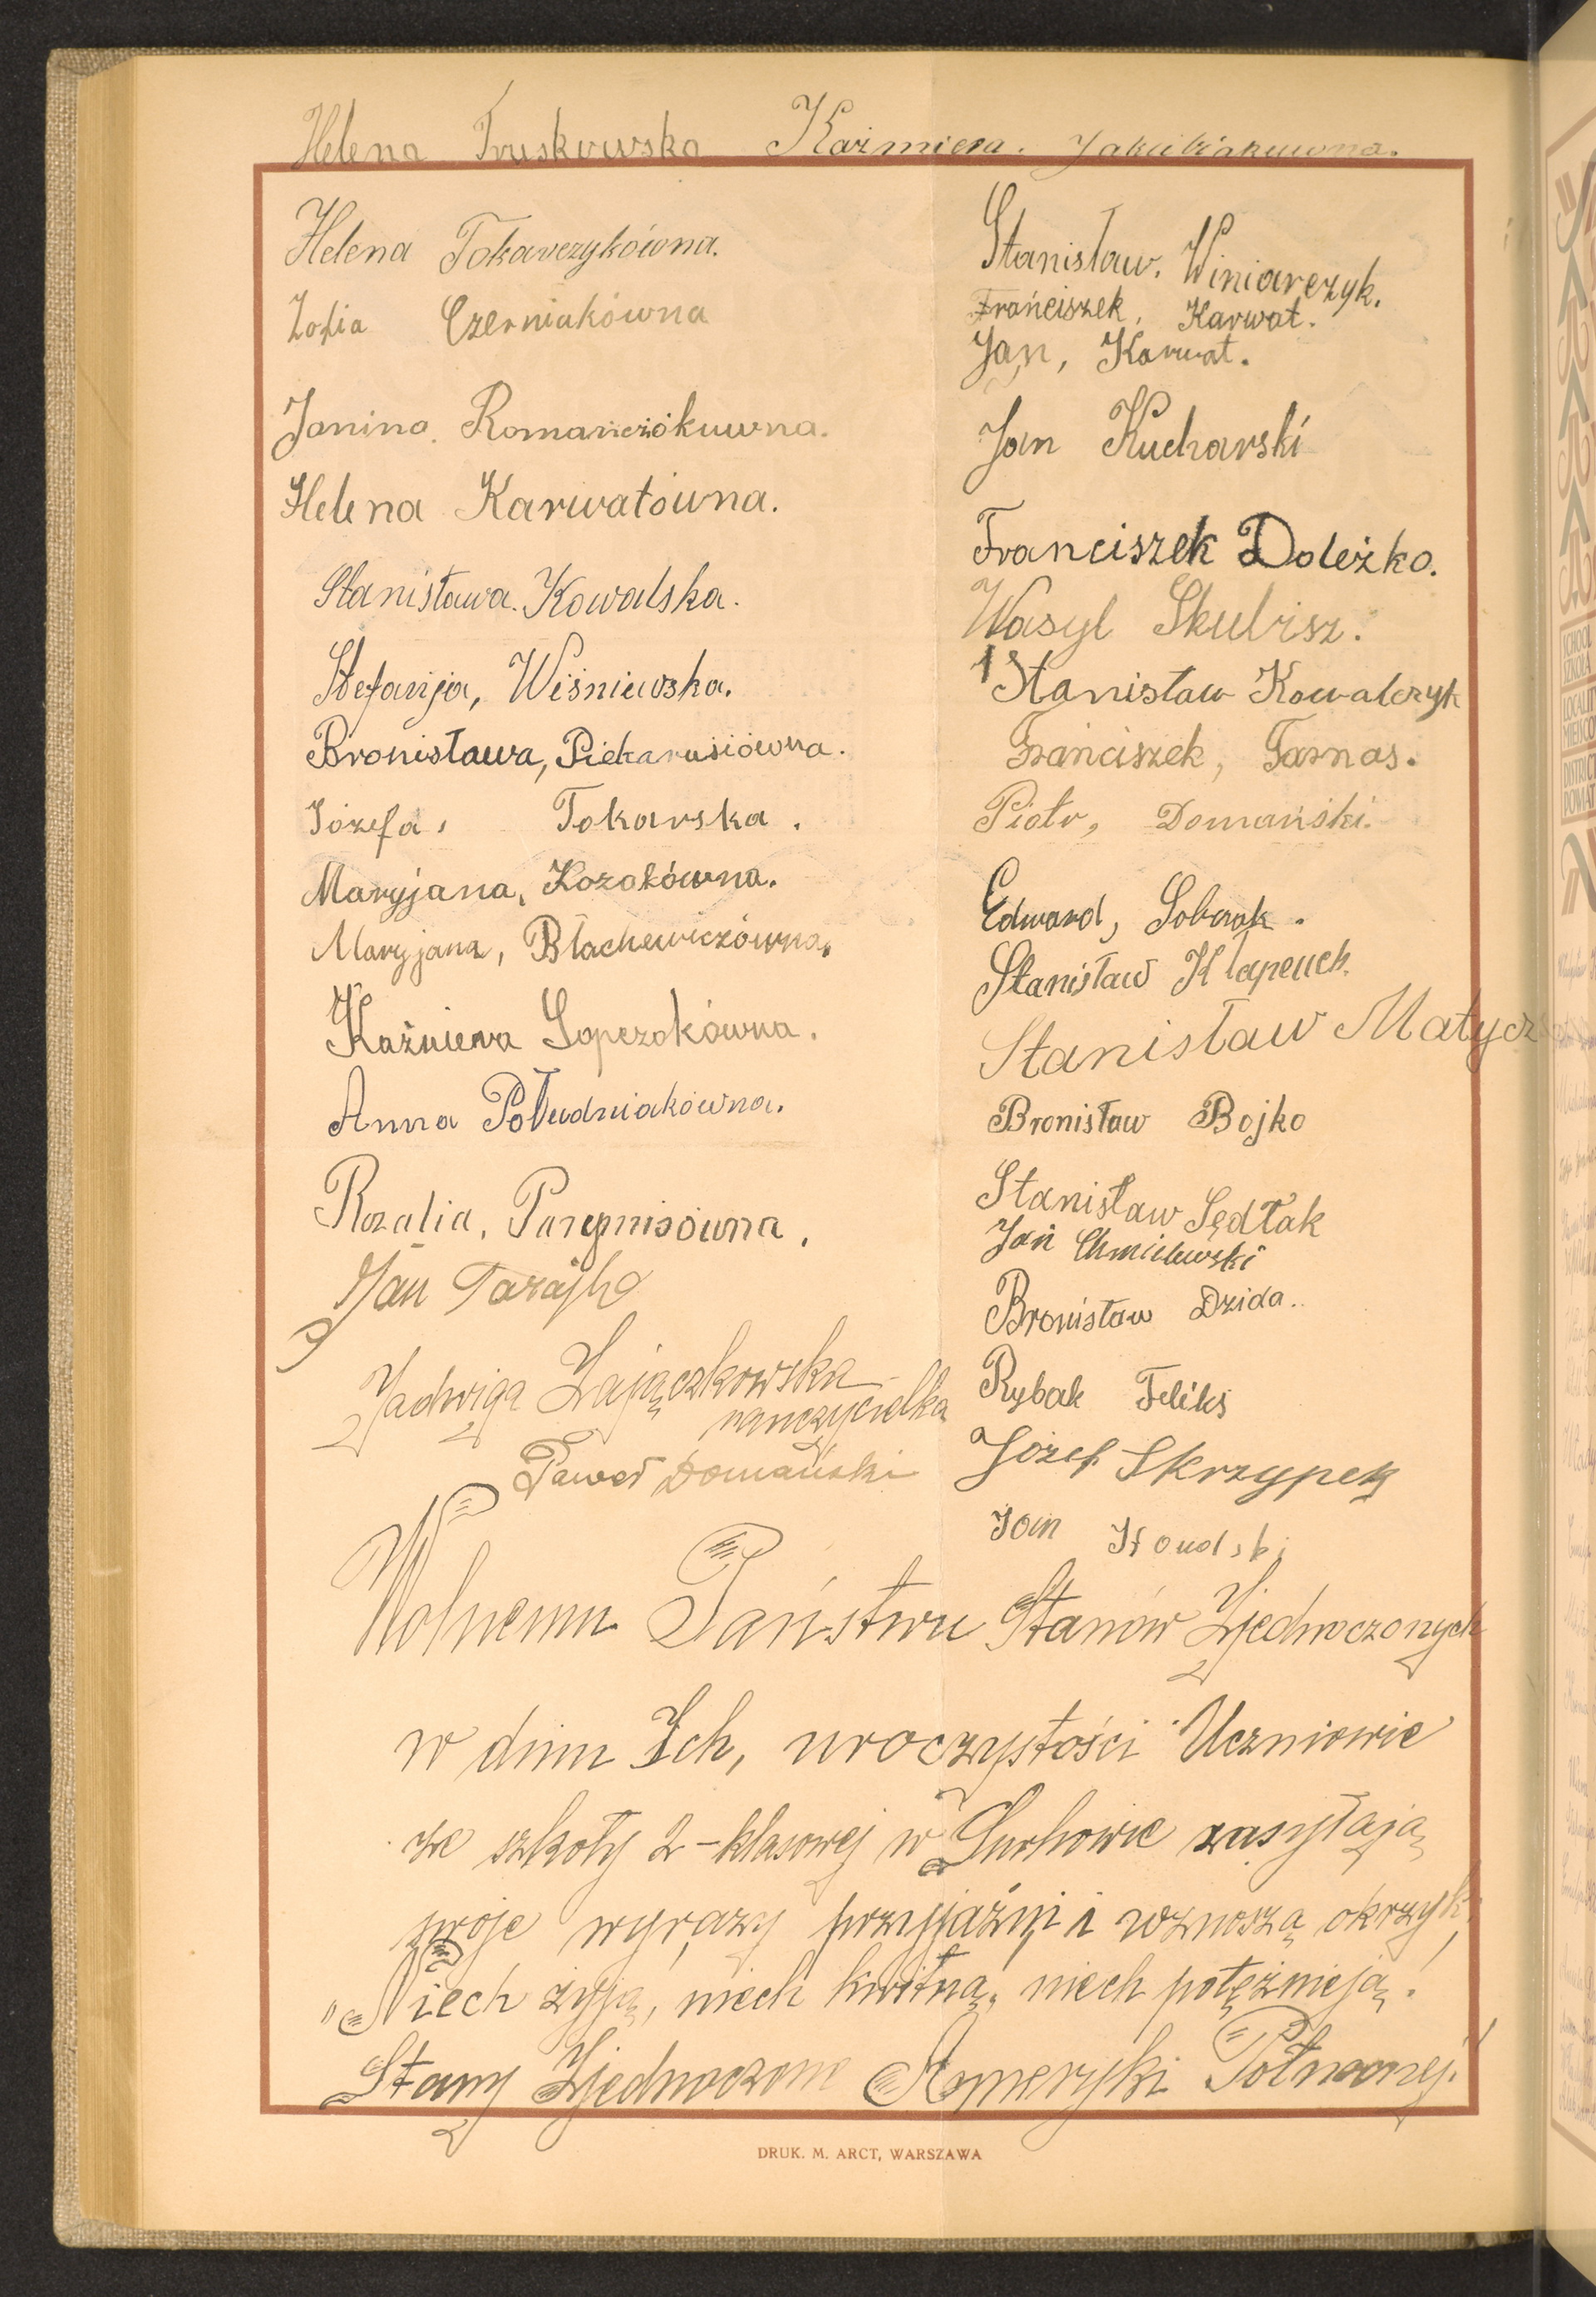 Helena Truskowska Kaźmiera. Jakubiakuwna.
Helena Tokarczykówna.
Zofia Czerniakówna
Janina. Romańczókuwna.
Helena Karwatówna.
Stanisława. Kowalska.
Stefanja, Wiśniewska.
Bronisława, Piekarusiówna.
Józefa, Tokarska.
Maryjana, Kozakówna.
Maryjana, Błachewiczówna.
Kaźmiera Łopczokówna.
Anna Południakówna.
Rozalia,
Jan
Jadwiga Zajączkowska
nauczycielka
Paweł Domański
Stanisław. Winiarczyk.
Frańciszek, Karwat.
Jan, Karwat.
Jan Kucharski
Franciszek Doleżko.
Wasyl Skubisz.
Stanisław Kowalczyk
Frańciszek, Tarnas.
Piotr, Domański.
Edward, Sobczak.
Stanisław
Stanisław Matycz
Bronisław Bojko
Stanisław Sędłak
Jan Chmielewski
Bronisław Dzida..
Rybak Feliks
Józef Skrzypek
Jan
Wolnemu Państwu Stanów Zjednoczonych
w dniu Ich, uroczystości Uczniowie
ze szkoły 2-klasowej w zasyłają
swoje wyrazy przyjaźni i wznoszą okrzyk,
"Niech żyją, niech kwitną, niech potężnieją!
Stany Zjednoczone Ameryki Północnej!
DRUK. M. ARCT, WARSZAWA
SCHOOL
SZKOŁA